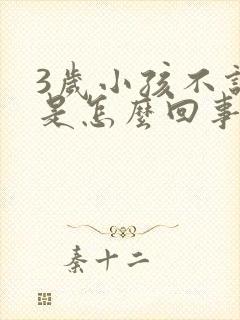 3歲小孩不
是怎麼回事
秦十二